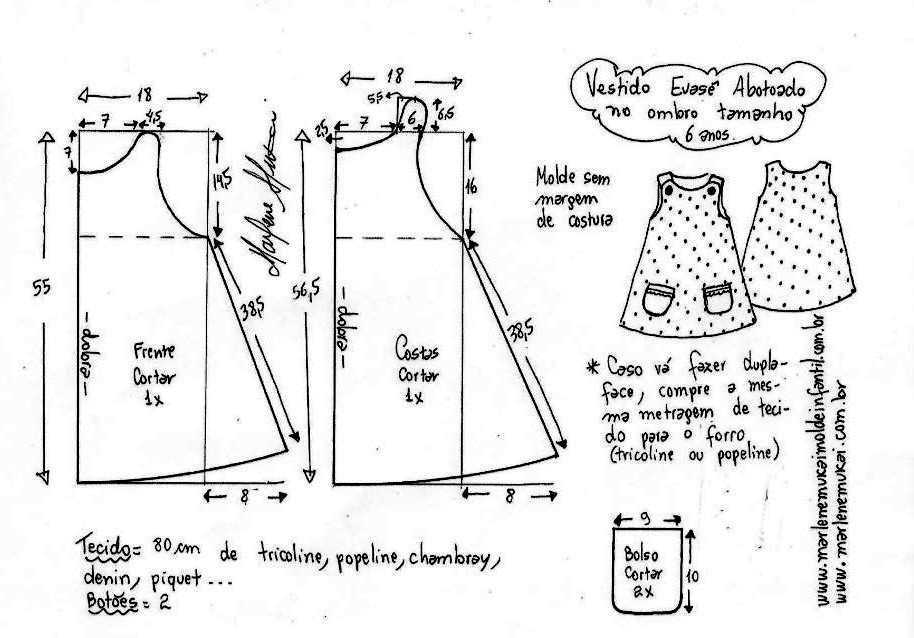 Vestido Evasê Abotoado
no ombro tamanho
6 anos.
Molde sem
margem
de costura
18
7
4,5
7
14,5
55
38,5
dobra
Frente
Cortar
1x
8
Marlene Mukai
18
5,5
2,5
7
6
6,5
16
56,5
38,5
dobra
Costas
Cortar
1x
8
* Caso vá fazer dupla-
face, compre a mes-
ma metragem de teci-
do para o forro
(tricoline ou popeline)
www.marlenemukaimoldeinfantil.com.br
www.marlenemukai.com.br
9
Bolso
Cortar
2x
10
Tecido= 80 cm de tricoline, popeline, chambray,
denin, piquet ...
Botões= 2